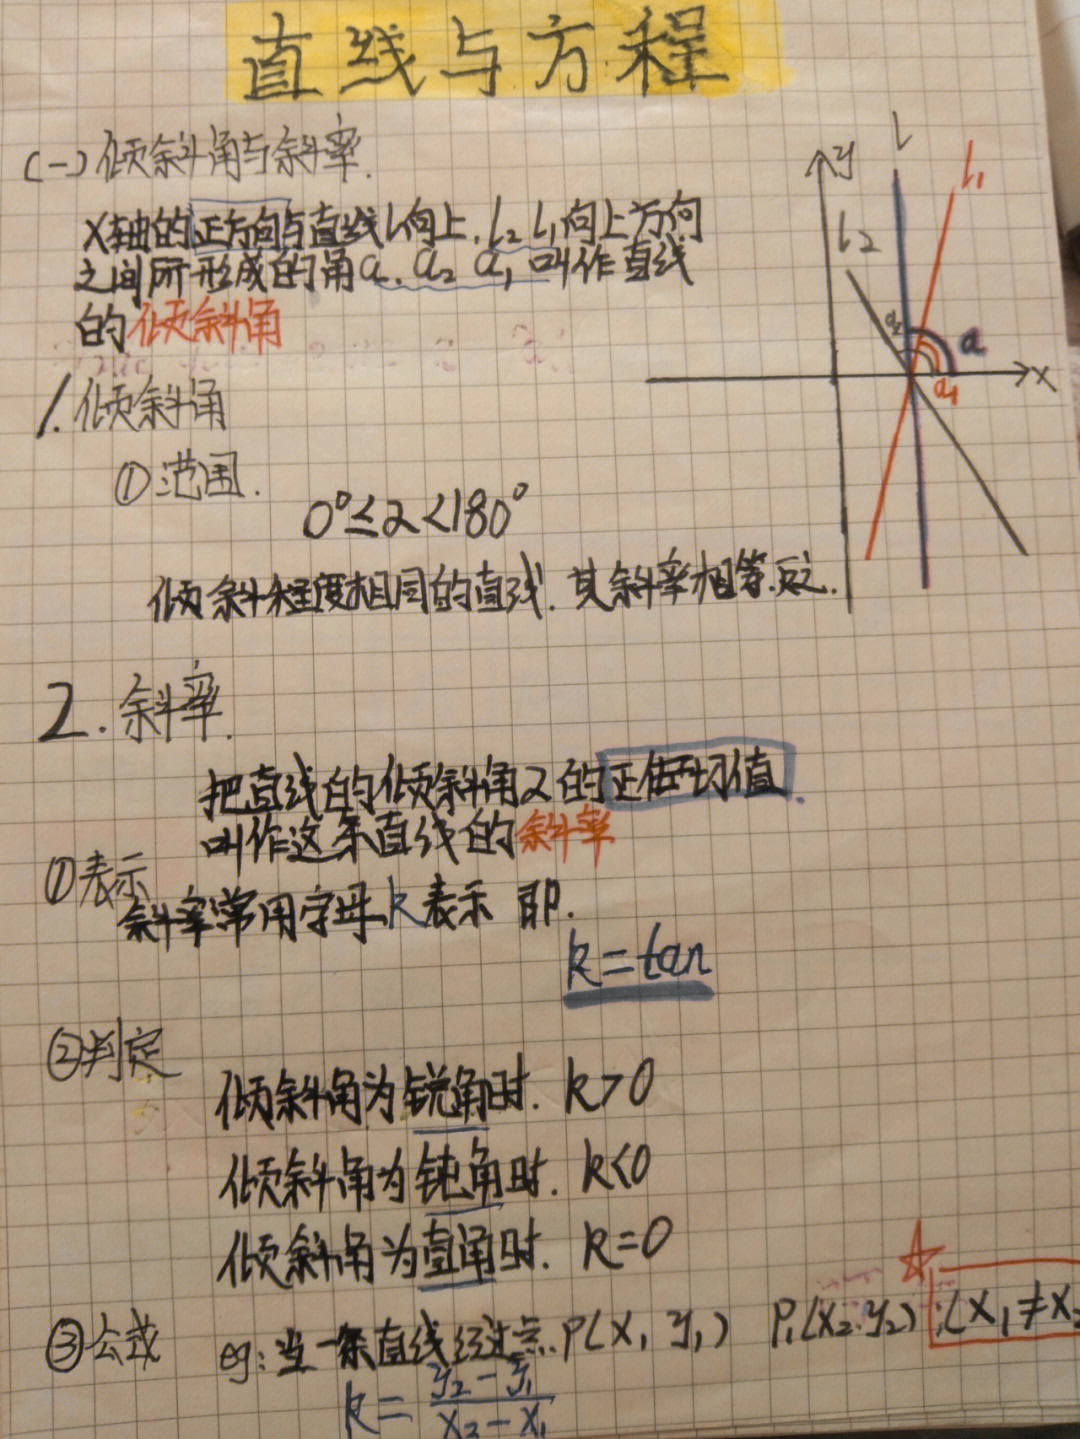 直线与方程
(一)倾斜角与斜率.
X轴的正方向与直线l向上.l₂ l₁向上方向
之间所形成的角a、a₂ a₁叫作直线
的倾斜角
y
l
l₁
l₂
a₂
a
a₁
x
1.倾斜角
①范围.
0°≤2<180°
倾斜程度相同的直线.其斜率相等.反之.
2.斜率.
把直线的倾斜角2的正切值.
叫作这条直线的斜率
①表示
斜率常用字母k表示 即.
k=tan
②判定
倾斜角为锐角时. k>0
倾斜角为钝角时. k<0
倾斜角为直角时. k=0
③公式 eg:当一条直线经过点.P(x₁ y₁) P₁(x₂.y₂);(x₁≠x₂
k= y₂-y₁ / x₂-x₁